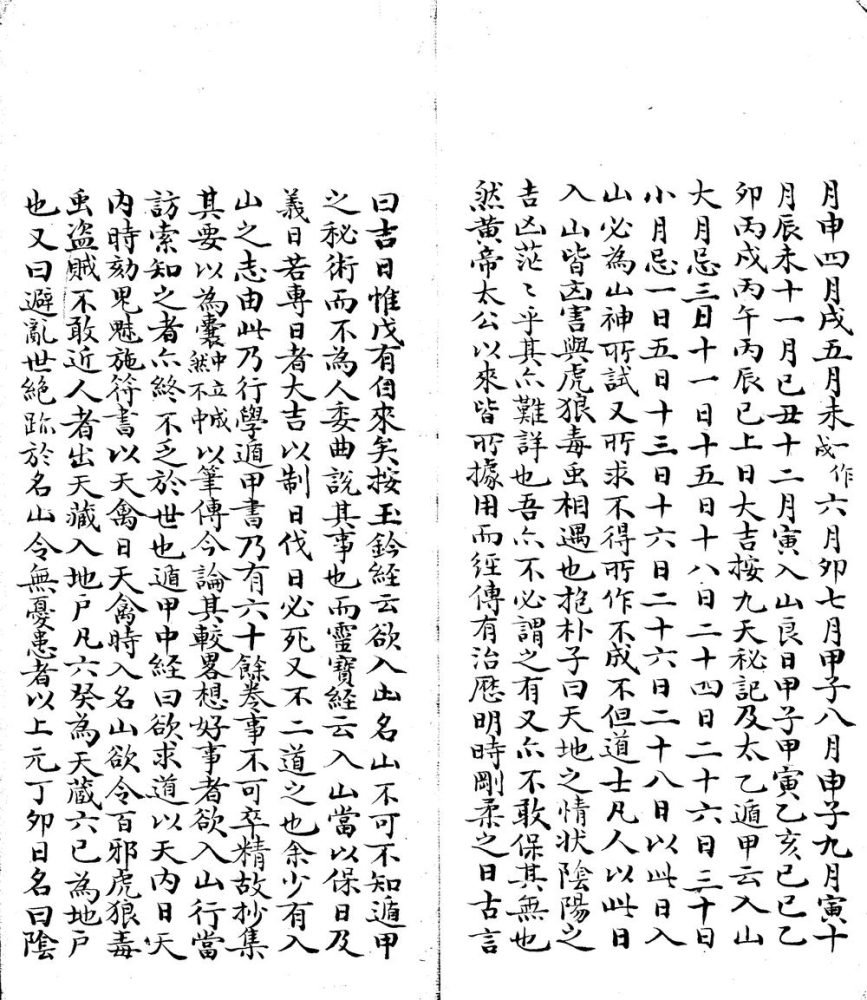 月申四月戌五月未一作戌六月卯七月甲子八月申子九月寅十
月辰未十一月巳丑十二月寅入山良日甲子甲寅乙亥巳巳乙
卯丙戌丙午丙辰已上日大吉按九天秘記及太乙遁甲云入山
大月忌三日十一日十五日十八日二十四日二十六日三十日
小月忌一日五日十三日十六日二十六日二十八日以此日入
山必為山神所試又所求不得所作不成不但道士凡人以此日
入山皆凶害與虎狼毒虫相遇也抱朴子曰天地之情状陰陽之
吉凶茫〻乎其亦難詳也吾亦不必謂之有又亦不敢保其無也
然黄帝太公以來皆所據用而經傳有治厯明時剛柔之日古言
曰吉日惟戊有自來矣按玉鈐經云欲入出名山不可不知遁甲
之秘術而不為人委曲說其事也而靈寶經云入山當以保日及
義日若專日者大吉以制日伐日必死又不二道之也余少有入
山之志由此乃行學遁甲書乃有六十餘卷事不可卒精故抄集
其要以為囊中立成然不中以筆傳今論其較畧想好事者欲入山行當
訪索知之者亦終不乏於世也遁甲中經曰欲求道以天内日天
内時劾鬼魅施符書以天禽日天禽時入名山欲令百邪虎狼毒
虫盗賊不敢近人者出天藏入地戸凡六癸為天藏六巳為地戸
也又曰避亂世絶跡於名山令無憂患者以上元丁卯日名曰陰